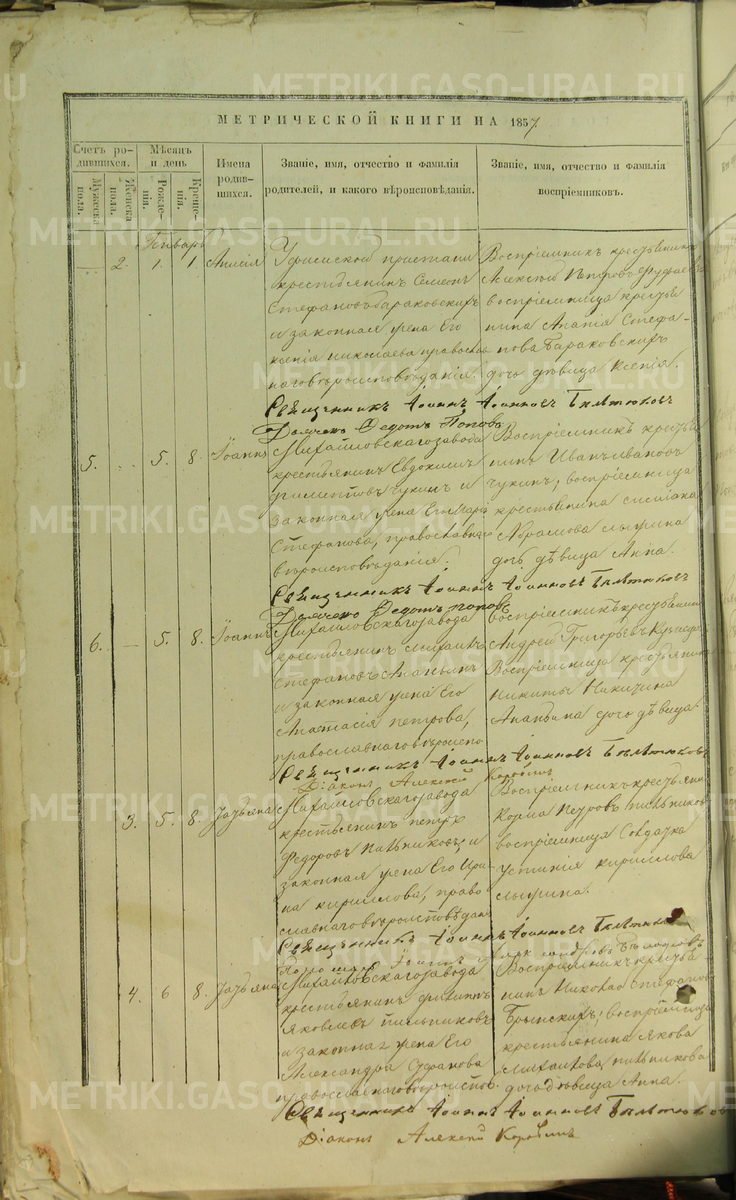 МЕТРИЧЕСКОЙ КНИГИ НА 1857
Счетъ родившихся.
Мужеска пола.
Женска пола.
Мѣсяцъ и день
Рожденія.
Крещенія.
Имена родившихся.
Званіе, имя, отчество и фамилія родителей, и какого вѣроисповѣданія.
Званіе, имя, отчество и фамилія воспріемниковъ.
Январь
2. 1. 1.
Уфимской пристани
крестьянинъ Семенъ
Стефановъ Бараковскихъ
и законная жена Его
Ксенія Николаева православ
наго вѣроисповѣданія.
Воспріемникъ крестьянинъ
Алексѣй Петровъ
воспріемница крестья
нина Стефа-
нова Бараковскихъ
дочь дѣвица Ксенія.
Священникъ Іоаннъ Іоанновъ
Дьячекъ Федотъ Поповъ
5. 5. 8. Іоаннъ
Михайловскаго завода
крестьянинъ Евдокимъ
Чукинъ и
законная жена Его Марія
Стефанова, православнаго
вѣроисповѣданія.
Воспріемникъ крестья
нинъ Иванъ Ивановъ
Чукинъ, воспріемница
крестьянина
Абрамова
дочь дѣвица Анна.
Священникъ Іоаннъ Іоанновъ
Дьячекъ Федотъ Поповъ
6. 5. 8. Іоаннъ
Михайловскаго завода
крестьянинъ
Стефановъ Ананьинъ
и законная жена Его
Анастасія Петрова,
православнаго вѣроиспо
Воспріемникъ крестьянинъ
Андрей Григорьевъ
Воспріемница крестьянина
Никиты Никитина
Ананьина дочь дѣвица.
Священникъ Іоаннъ Іоанновъ
Діаконъ Алексѣй Коровинъ
3. 5. 8. Татьяна
Михайловскаго завода
крестьянинъ Петръ
Федоровъ Пильниковъ, и
законная жена Его Ири
на Кириллова, право
славнаго вѣроисповѣдан
Воспріемникъ крестьянинъ
Петровъ Пильниковъ
воспріемница Солдатка
Устинія Кириллова
Священникъ Іоаннъ Іоанновъ
4. 6 8. Татьяна
Михайловскаго завода
крестьянинъ Филиппъ
Яковлевъ Пильниковъ
и законная жена Его
Александра Стефанова
православнаго вѣроиспов.
Воспріемникъ крестья
нинъ Николай Стефановъ
воспріемница
крестьянина Якова
Михайлова Пильникова
дочь дѣвица Анна.
Священникъ Іоаннъ Іоанновъ
Діаконъ Алексѣй Коровинъ
METRIKI.GASO-URAL.RU